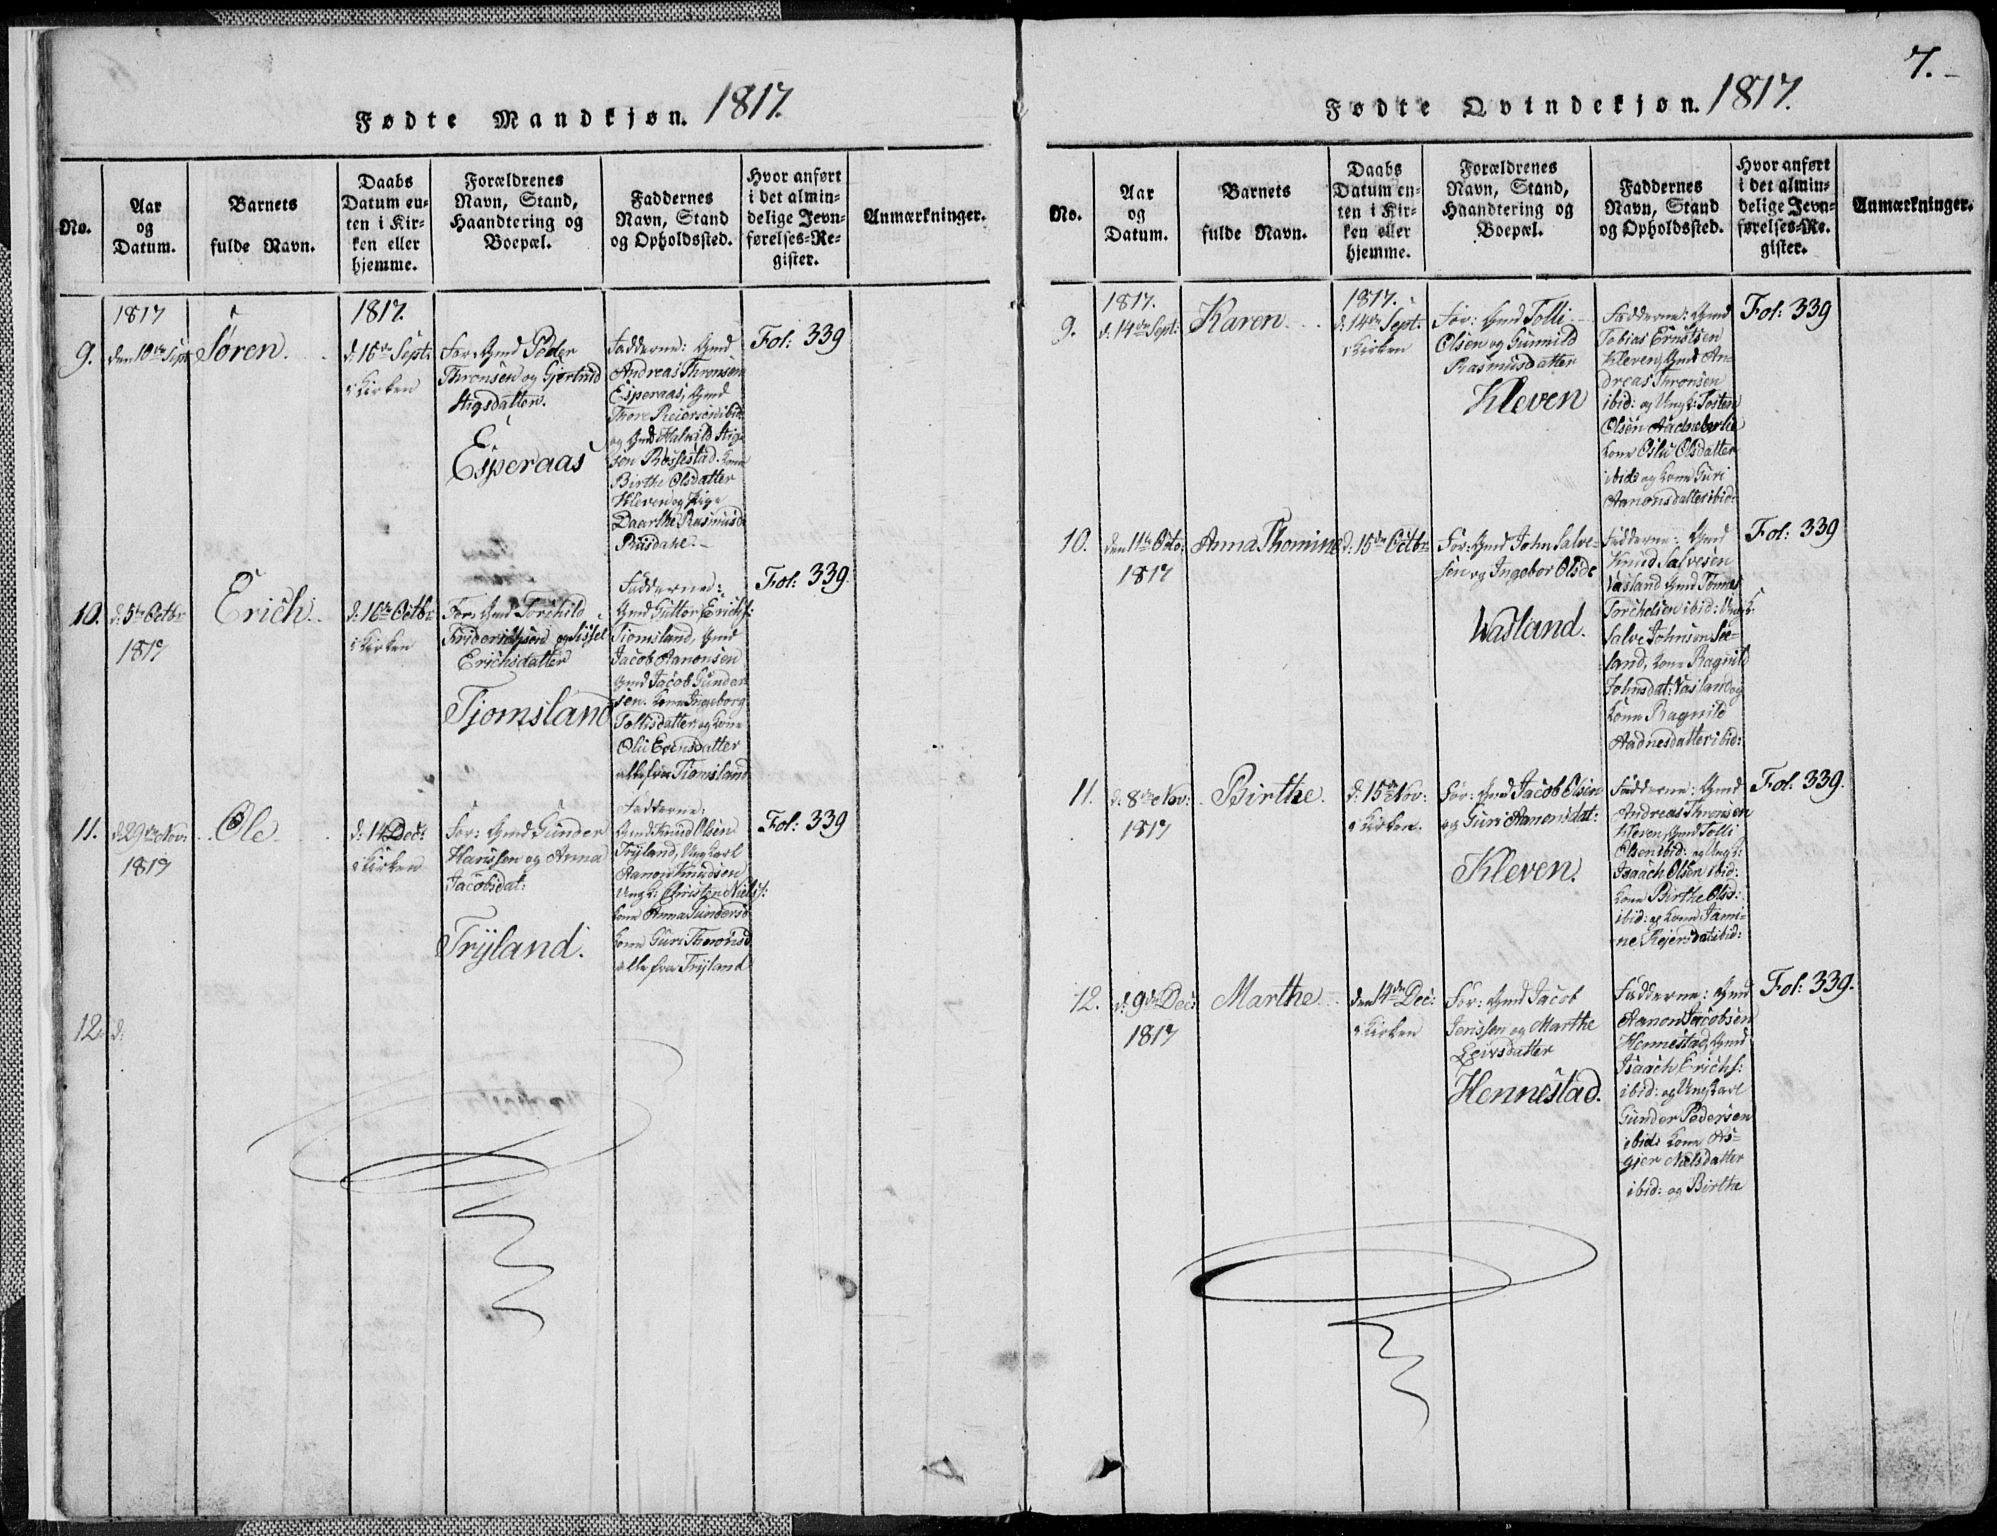 Fødte Mandkjøn. 1817.
No.
Aar
og
Datum.
Barnets
fulde Navn.
Daabs
Datum en-
ten i Kir-
ken eller
hjemme.
Forældrenes
Navn, Stand,
Haandtering og
Boepæl.
Faddernes
Navn, Stand
og Opholdssted.
Hvor anført
i det almin-
delige Jevn-
førelses-Re-
gister.
Anmærkninger.
9.
1817
den 10de Sept
Søren.
1817.
d: 15de Sept:
i Kirken
For: Gmd Peder
Thronsen og Gjertrud
Stigsdatter.
Esperaas
Fadderne: Gmd
Andreas Thronsen
Esperaas, Gmd
Thore Reiersen ibid:
og Gmd Halvild Stig-
sen Røssestad. Kone
Birthe Olsdatter
Kleven og Pige
Daarthe Rasmusd:
Risdahl.
Fol: 339
10.
d: 5te Octbr
1817
Erich.
d: 16de Octbr
i Kirken
For: Gmd Torchild
Friderichsen og Sissel
Erichsdatter
Tjomsland
Fadderne:
Gmd Guttor Erichs:
Tjomsland, Gmd
Jacob Aanonsen
Gmd Jacob Gunder-
sen. Kone Ingeborg
Tollisdatter og Kone
Olu Evensdatter
alle fra Tiomsland
Fol: 339
11.
d: 29de Nov:
1817
Ole
d: 14 Dec:
i Kirken
For: Gmd Gunder
Hanssen og Anna
Jacobsdat:
Trÿland.
Fadderne:
Gmd Knud Olsen
Trÿland, Ungkarl
Aanon Knudsen
Ungk: Christen Niels:
Kone Anna Gundersd
Kone Guri Thoronsd
alle fra Trÿland
Fol: 339
12. d:
7.
Fødte Qvindekjøn. 1817.
No.
Aar
og
Datum.
Barnets
fulde Navn.
Daabs
Datum en-
ten i Kir-
ken eller
hjemme.
Forældrenes
Navn, Stand,
Haandtering og
Boepæl.
Faddernes
Navn, Stand
og Opholdssted.
Hvor anført
i det almin-
delige Jevn-
førelses-Re-
gister.
Anmærkninger.
9.
1817.
d: 14de Sept:
Karen
1817.
d: 14de Sept:
i Kirken
For: Gmd Tolli
Olsen og Gunnild
Rasmusdatter
Kleven
Fadderne: Gmd
Tobias Ernstsen
Kleven, Gmd An-
dreas Thronsen
ibid: og Ungk: Torsten
Olsen
Kone Oslu Olsdatter
ibid: og Kone Guri
Aanonsdatter ibid:
Fol: 339
10.
den 11te Octo:
1817
Anna Thomine
d: 15de Octbr
For: Gmd John Salve-
sen og Ingebor Olsd:
Wasland.
Fadderne: Gmd
Knud Salvesen
Vasland Gmd Tønnes
Torchelsen ibid: Ungk:
Salve Johnsen See-
land, Kone Ragnild
Johnsdat: Vasland og
Kone Ragnild
Aadnesdatter ibid:
Fol: 339
11.
d: 8de Nov:
1817
Birthe.
d: 15de Nov:
i Kirken.
For: Gmd Jacob Olsen
og Guri Aanonsdat:
Kleven.
Fadderne: Gmd
Andreas Thronsen
Kleven, Gmd Tolli
Olsen ibid: og Ungk:
Isaach Olsen ibid:
Kone Birthe Olsd:
ibid: og Kone Jami-
ne Rejersdat: ibid:
Fol: 339.
12.
d: 9de Dec:
1817
Marthe
den 14de Dec:
i Kirken
For: Gmd Jacob
Jenssen og Marthe
Leivsdatter
Hennestad.
Fadderne: Gmd
Aanon Jacobsen
Hennestad, Gmd
Isaach Erichs:
ibid: og Ungkarl
Gunder Pedersen
ibid: Kone As-
gier Nielsdatter
ibid: og Birthe
Fol: 339.